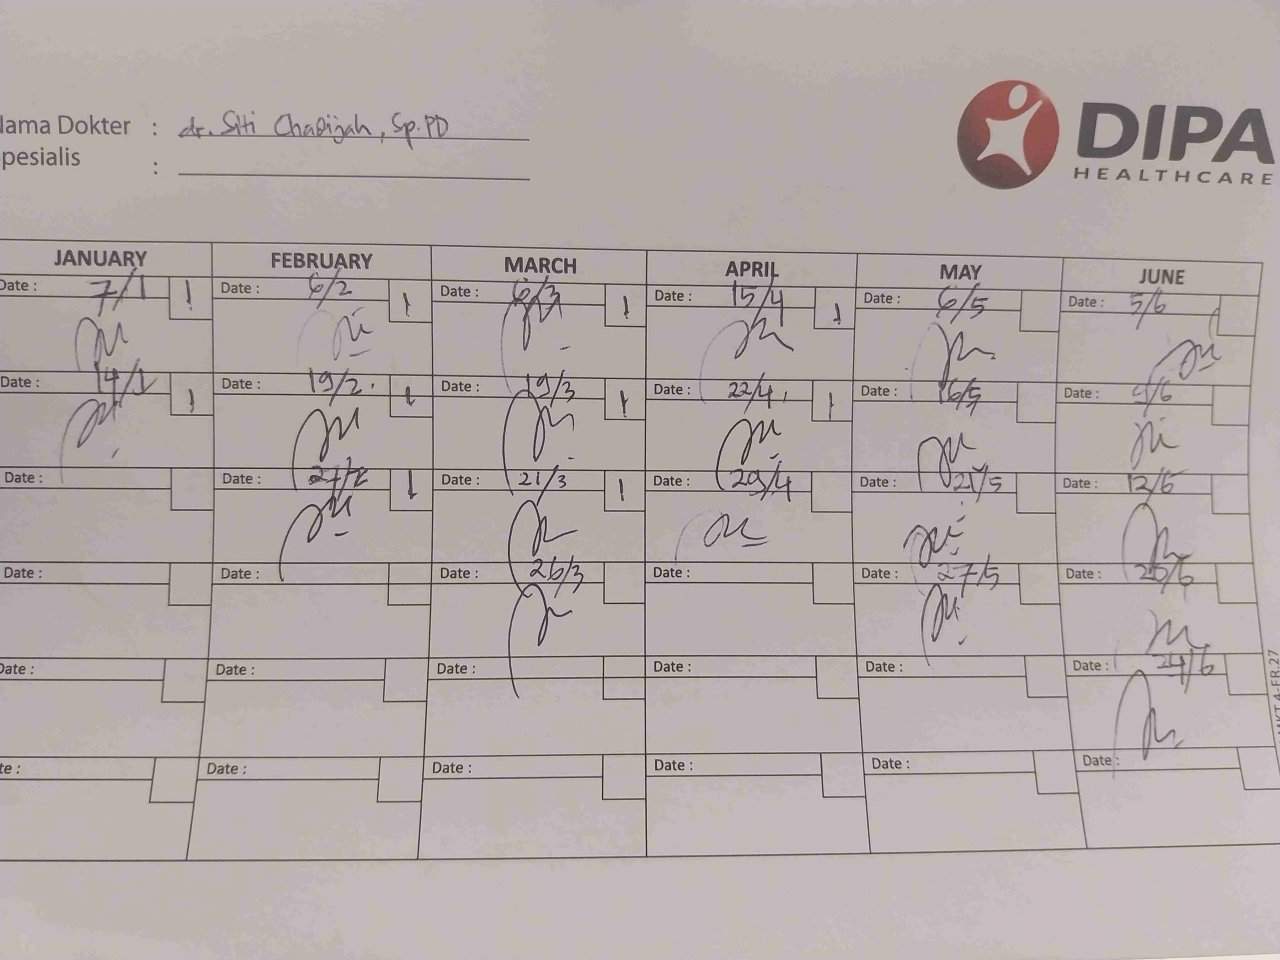 Nama Dokter : dr. Siti Chadijah, Sp.PD
Spesialis :
DIPA
HEALTHCARE
JANUARY FEBRUARY MARCH APRIL MAY JUNE
Date : 7/1 1 Date : 6/2 1 Date : 6/3 1 Date : 15/4 1 Date : 6/5 Date : 5/6
Date : 14/1 1 Date : 19/2 1 Date : 19/3 1 Date : 22/4 1 Date : 16/5 Date :
Date : Date : 27/2 1 Date : 21/3 1 Date : 29/4 Date : 21/5 Date : 12/6
Date : Date : Date : 26/3 Date : Date : 27/5 Date : 20/6
Date : Date : Date : Date : Date : Date : 24/6
Date : Date : Date : Date : Date : Date :